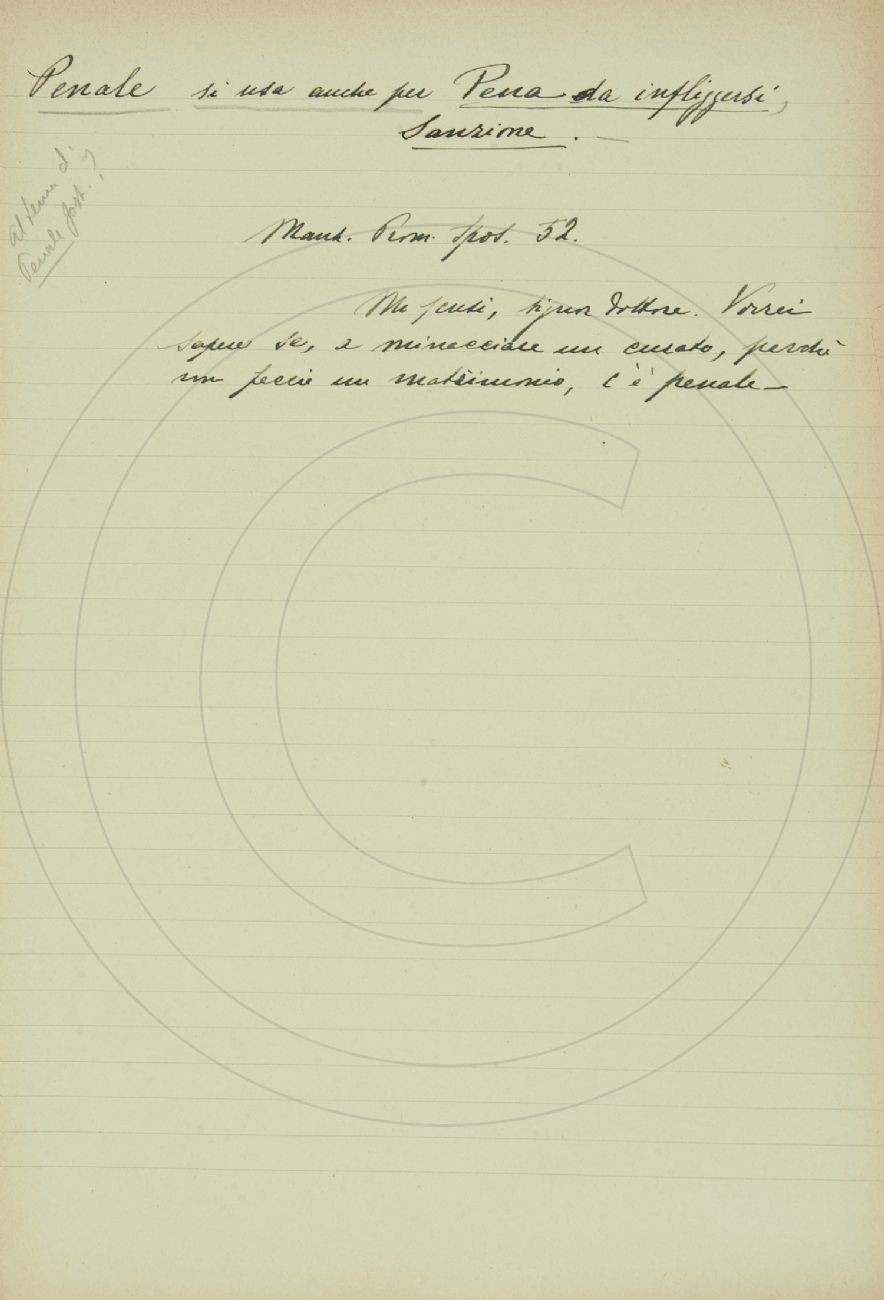 Penale si usa anche per Pena da infliggersi,
Sanzione. —
al tema di
Penale sost. ?
Manz. Prom. Spos. 52.
Mi scusi, signor dottore. Vorrei
sapere se, a minacciare un curato, perchè
non faccia un matrimonio, c'è penale —